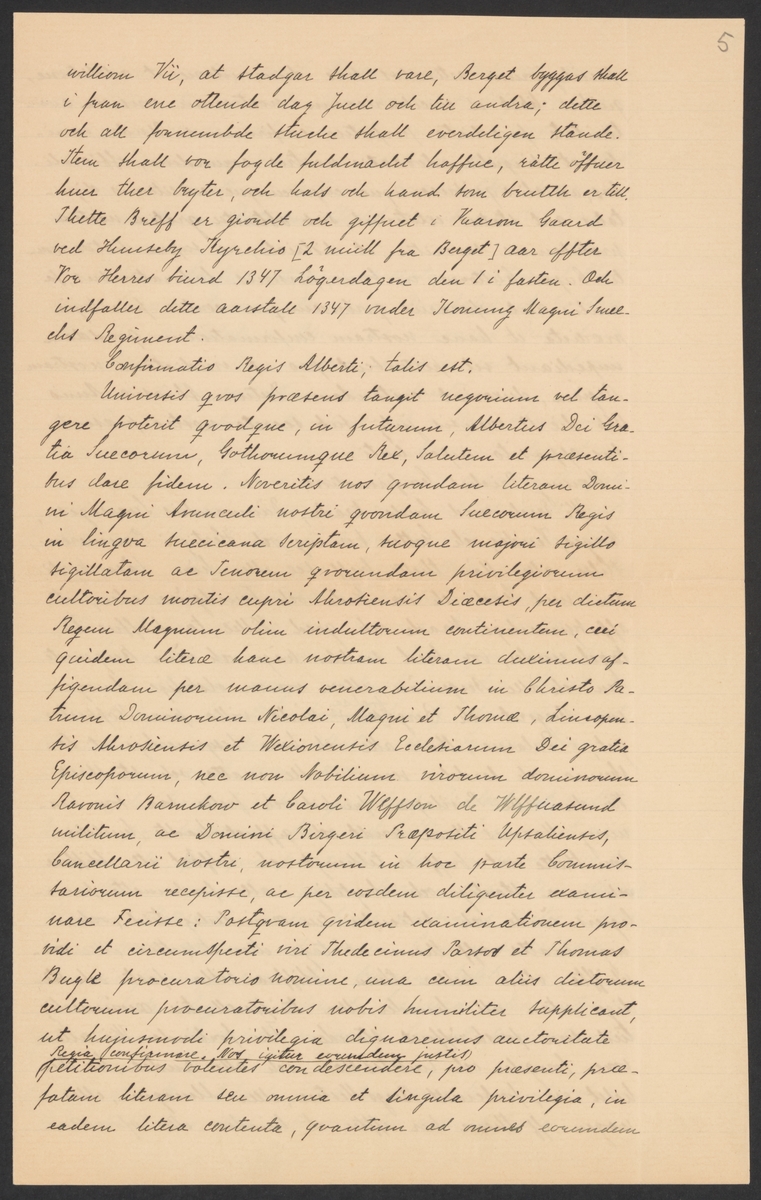 5
williom Vii, at stadgar shall vare, Berget byggas shall
i fran ene ottende dag Juell och till andra; dette
och all fornumbde stuche shall everdeligen stånde.
Item shall vor fogde fuldmacht haffue, rätte öffuer
huer ther bryter, och hals och hand som brutth er till.
Thette Breff er giordt och giffuet i Vaarom Gaard
ved Hunseby Kyrchio [2 miill fra Berget] aar effter
Vor Herres biurd 1347 Lögerdagen den 1 i fasten. Och
indfaller dette aarstall 1347 under Konung Magni Smec-
chs Regiment.
Confirmatio Regis Alberti, talis est.
Universis qvos præsens tangit negorium vel tan-
gere poterit qvodque, in futurum, Albertus Dei Gra-
tia Suecorum, Gothorumque Rex, Salutem et præsenti-
bus dare fidem. Noveritis nos qvondam literam Domi-
ni Magni Avunculi nostri qvondam Suecorum Regis
in lingva suecicana scriptam, suoque majori sigillo
sigillatam ac Tenorem qvorundam privilegiorum
cultoribus montis cupri Ahrosiensis Diæcesis, per dictum
Regem Magnum olim indultorum continentem, cui
quidem literæ hanc nostram literam duximus af-
figendam per manus venerabilium in Christo Pa-
trum Dominorum Nicolai, Magni et Thomæ, Lincopen-
sis Ahrosiensis et Wexionensis Ecclesiarum Dei gratia
Episcoporum, nec non Nobilium virorum dominorum
Ravonis Barnekow et Caroli Wlffson de Wlffuasund
militum, ac Domini Birgeri Præpositi Upsaliensis,
Cancellarii nostri, nostorum in hoc parte Commis-
sariorum recepisse, ac per eosdem diligenter exami-
nare Fecisse: Postqvam qvidem examinationem pro-
vidi et circumspecti viri Thedecinus et Thomas
procuratorio nomine, una cum aliis dictorum
cultorum procuratoribus nobis humiliter supplicant,
ut hujusmodi privilegia dignaremus auctoritate
Regia confirmare. Nos igitur eorundem justis
petitionibus volentes condescendere, pro præsenti, præ-
fatam literam seu omnia et singula privilegia, in
eadem litera contenta, qvantum ad omnes eorundem